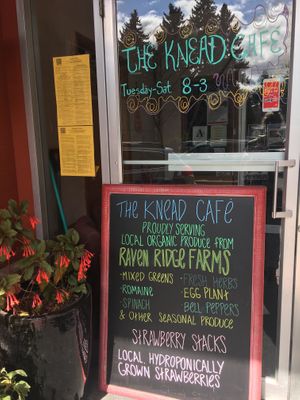 THE KNEAD CAFE
Tuesday-Sat 8-3
A
THE KNEAD CAFÉ
PROUDLY SERVING
LOCAL ORGANIC PRODUCE FROM
RAVEN RIDGE FARMS
·MIXED GREENS
·FRESH HERBS
·ROMAINE
·EGG PLANT
·SPINACH
BELL PEPPERS
& OTHER SEASONAL PRODUCE
STRAWBERRY STACKS
LOCAL HYDROPONICALLY
GROWN STRAWBERRIES